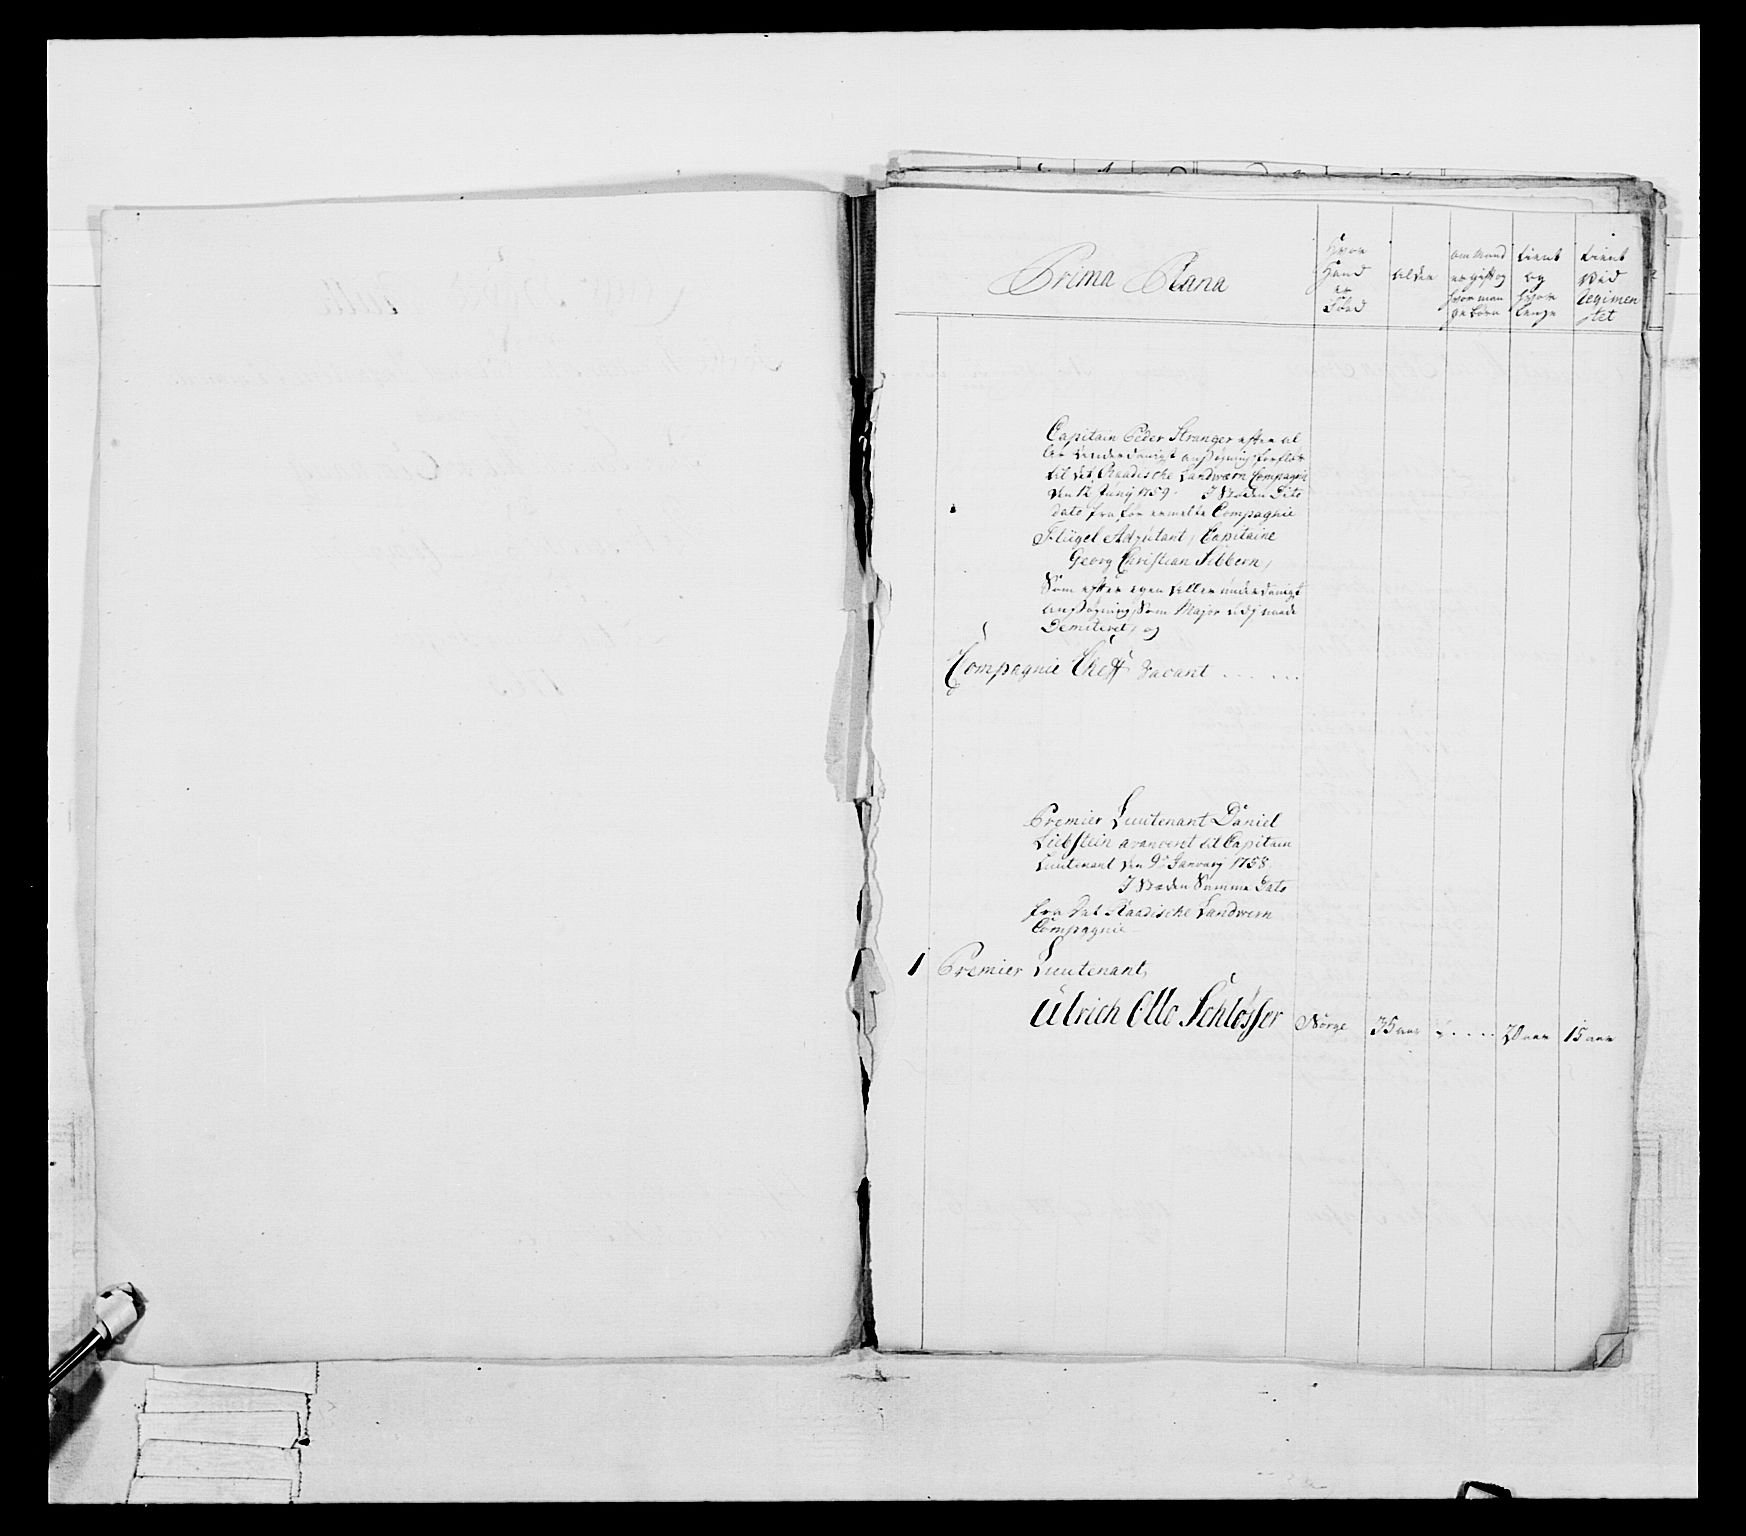 Prima Plana
Hvor
Hand
er
Föed
Alder
om Hand
er gift og
hvor man
ge börn
tient
og
hvor
lenge
tient
ved
Regimen
tet
Capitain Peder Stranger efter al
ler underdanigst ansögning forflöt
til det Raadische Landwærn Compagnie
den 12 Junÿ 1759. I Steden Dito
dato fra for ermelte Compagnie
Flügel Adjutant, Capitaine
Georg Christian Sibbern,
Som efter egen aller underdanigst
ansögning, Som Major
Demiteret, og
Compagnie Cheff vacant . . . . . .
Premier Lieutenant Daniel
Liebstein avancerit til Capitain
Lieutenant den 9de Januarij 1758.
I Steden Samme Dato
fra Det Raadische Landwern
Compagnie
1 Premier Lieutenant,
Ulrich Otto Schlösser Norge 35 aar . . . . . 20 aar 15 aar